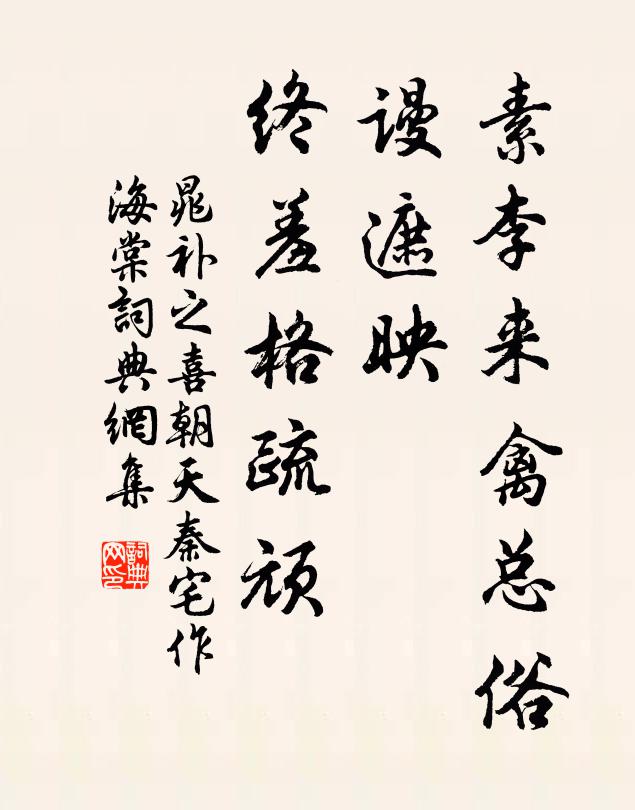 素李来禽总俗
謾遮映
终羞格疏顽
晁补之喜朝天秦宅作
海棠詞典網集
詞典
网印